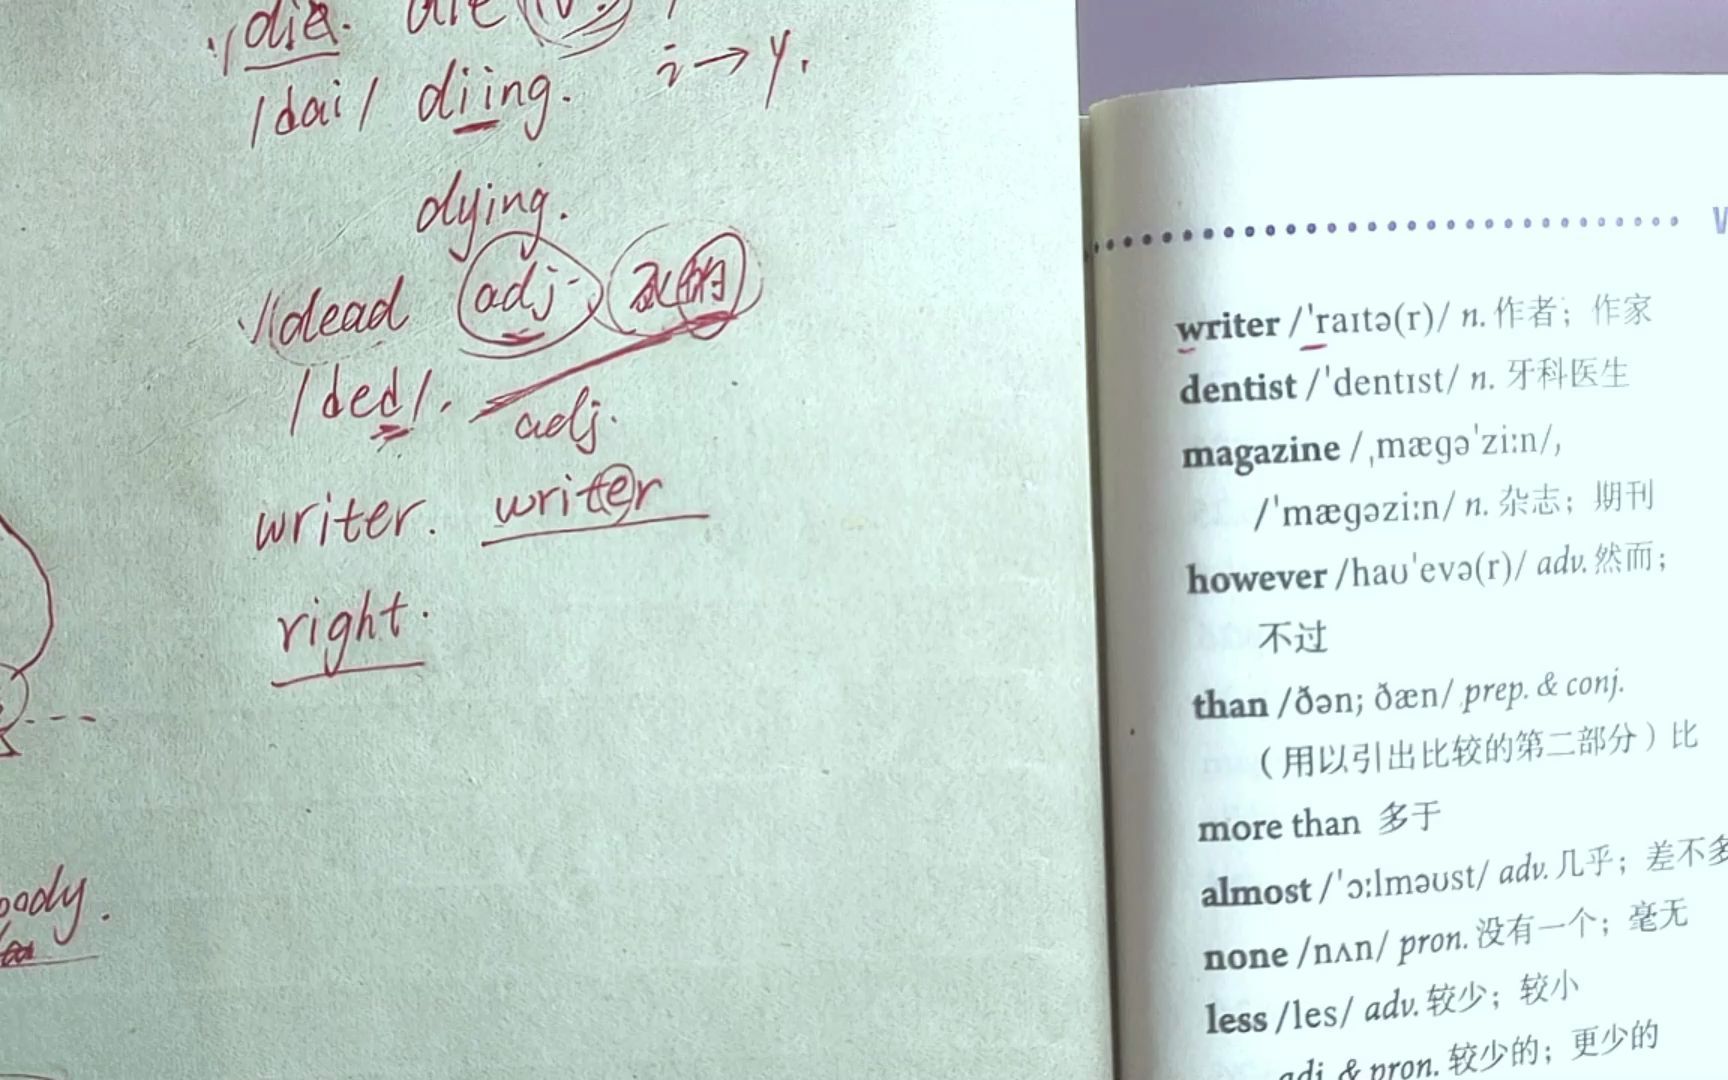 die. die (v.)
/dai/ diing. i→y.
dying.
dead adj. 死的
/ded/. adj.
writer. writer
right.
body.
writer /ˈraɪtə(r)/ n. 作者；作家
dentist /ˈdentɪst/ n. 牙科医生
magazine /ˌmæɡəˈziːn/,
/ˈmæɡəziːn/ n. 杂志；期刊
however /haʊˈevə(r)/ adv. 然而；
不过
than /ðən; ðæn/ prep. & conj.
（用以引出比较的第二部分）比
more than 多于
almost /ˈɔːlməʊst/ adv. 几乎；差不多
none /nʌn/ pron. 没有一个；毫无
less /les/ adv. 较少；较小
adj. & pron. 较少的；更少的